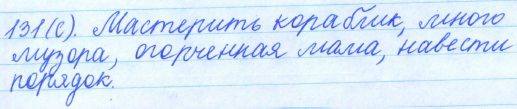 131(с). Мастерить кораблик, много
музора, огорченная мама, навести
порядок.